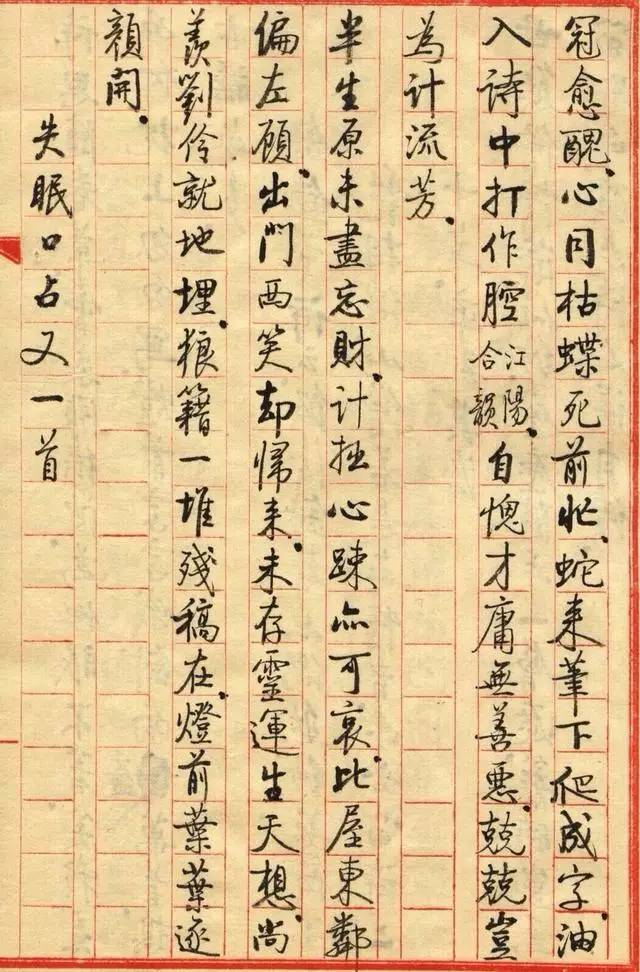 冠愈醜。心同枯蝶死前忙。蛇来筆下爬成字。油
入詩中打作腔江陽合韻。自愧才庸無善惡。兢兢豈
為计流芳。
半生原未盡忘財。计拙心疎亦可哀。比屋東鄰
偏左顧。出門西笑却歸来。未存靈運生天想。尚
羨劉伶就地埋。狼籍一堆殘稿在。燈前葉葉逐
顏開。
失眠口占又一首